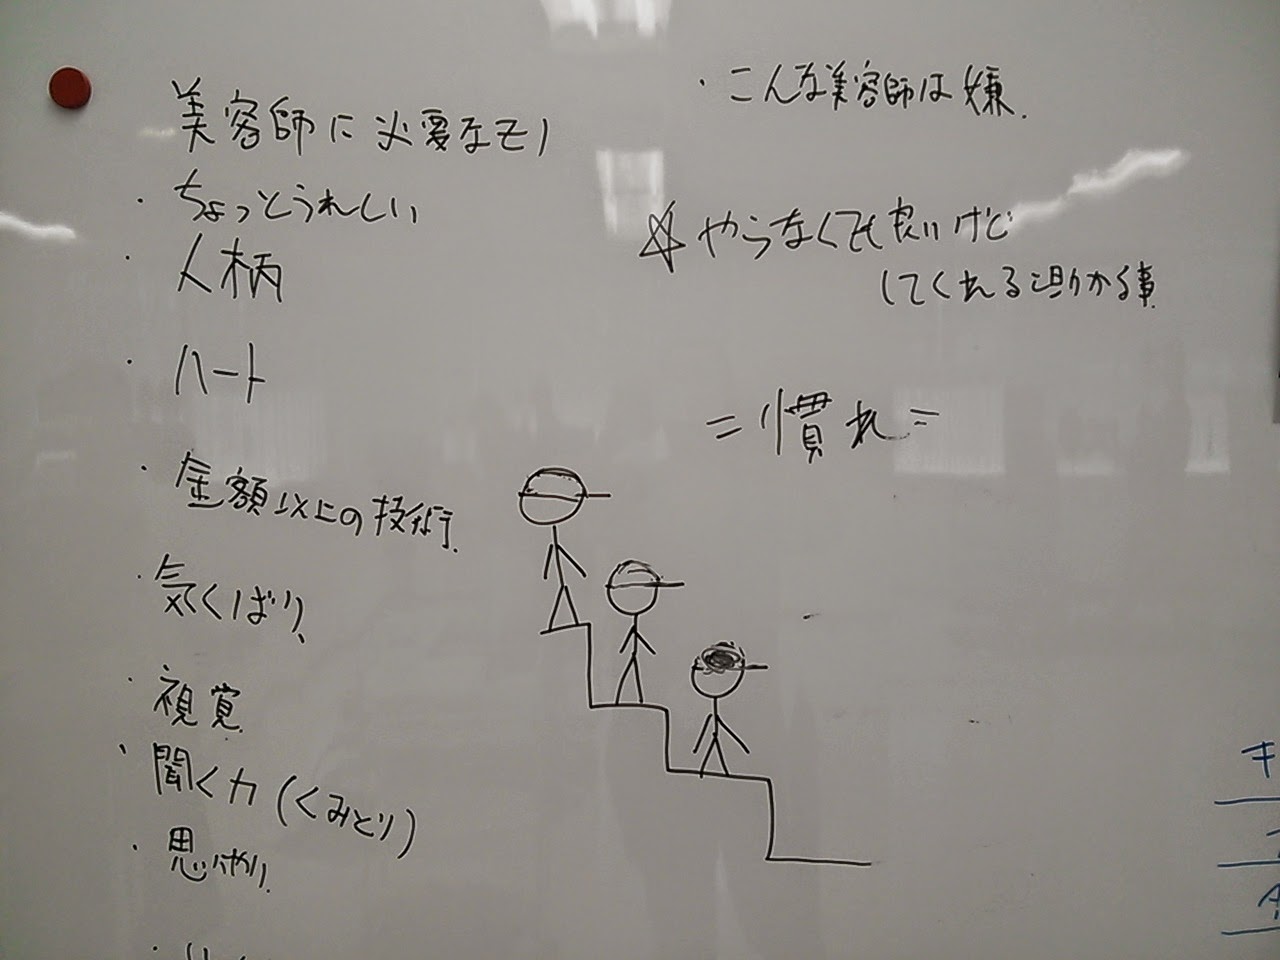 美容師に必要なモノ
・ちょっとうれしい
・人柄
・ハート
・金額以上の技術.
・気くばり、
・視覚
・聞く力(くみとり)
・思いやり.
・こんな美容師は嫌.
☆やらなくても良いけど
してくれる助かる事
=慣れ=
キ